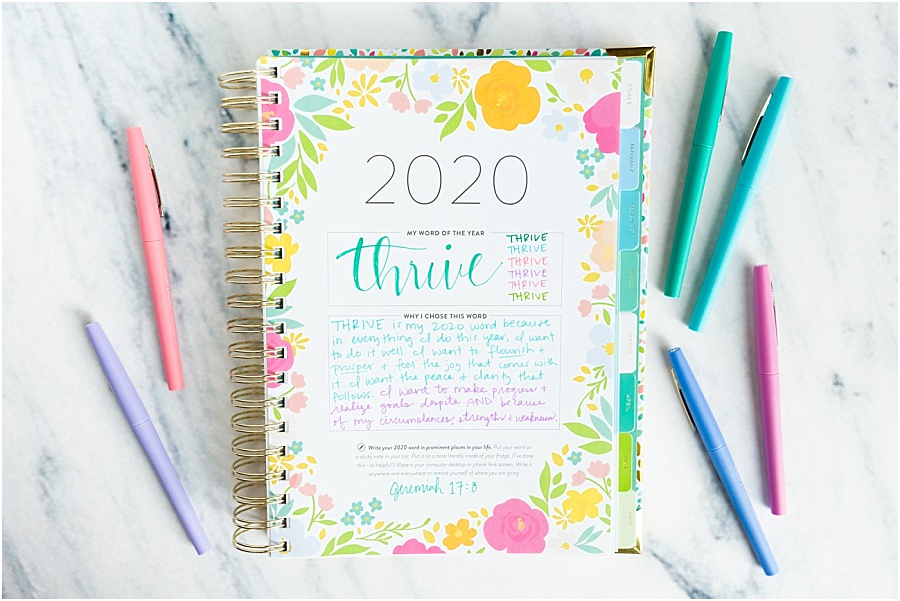 2020
MY WORD OF THE YEAR
thrive
THRIVE
THRIVE
THRIVE
THRIVE
THRIVE
THRIVE
WHY I CHOSE THIS WORD
THRIVE is my 2020 word because
in everything I do this year, I want
to do it well. I want to flourish +
prosper + feel the joy that comes with
it. I want the peace + clarity that
follows. I want to make progress +
realize goals despite AND because
of my circumstances, strengths + weaknesses.
Write your 2020 word in prominent places in your life. Put your word on
a sticky note in your car. Put it on a note literally inside of your fridge. (I've done
this—so helpful!) Make it your computer desktop or phone lock screen. Write it
anywhere and everywhere to remind yourself of where you are going.
Jeremiah 17:8
GOALS
APRIL